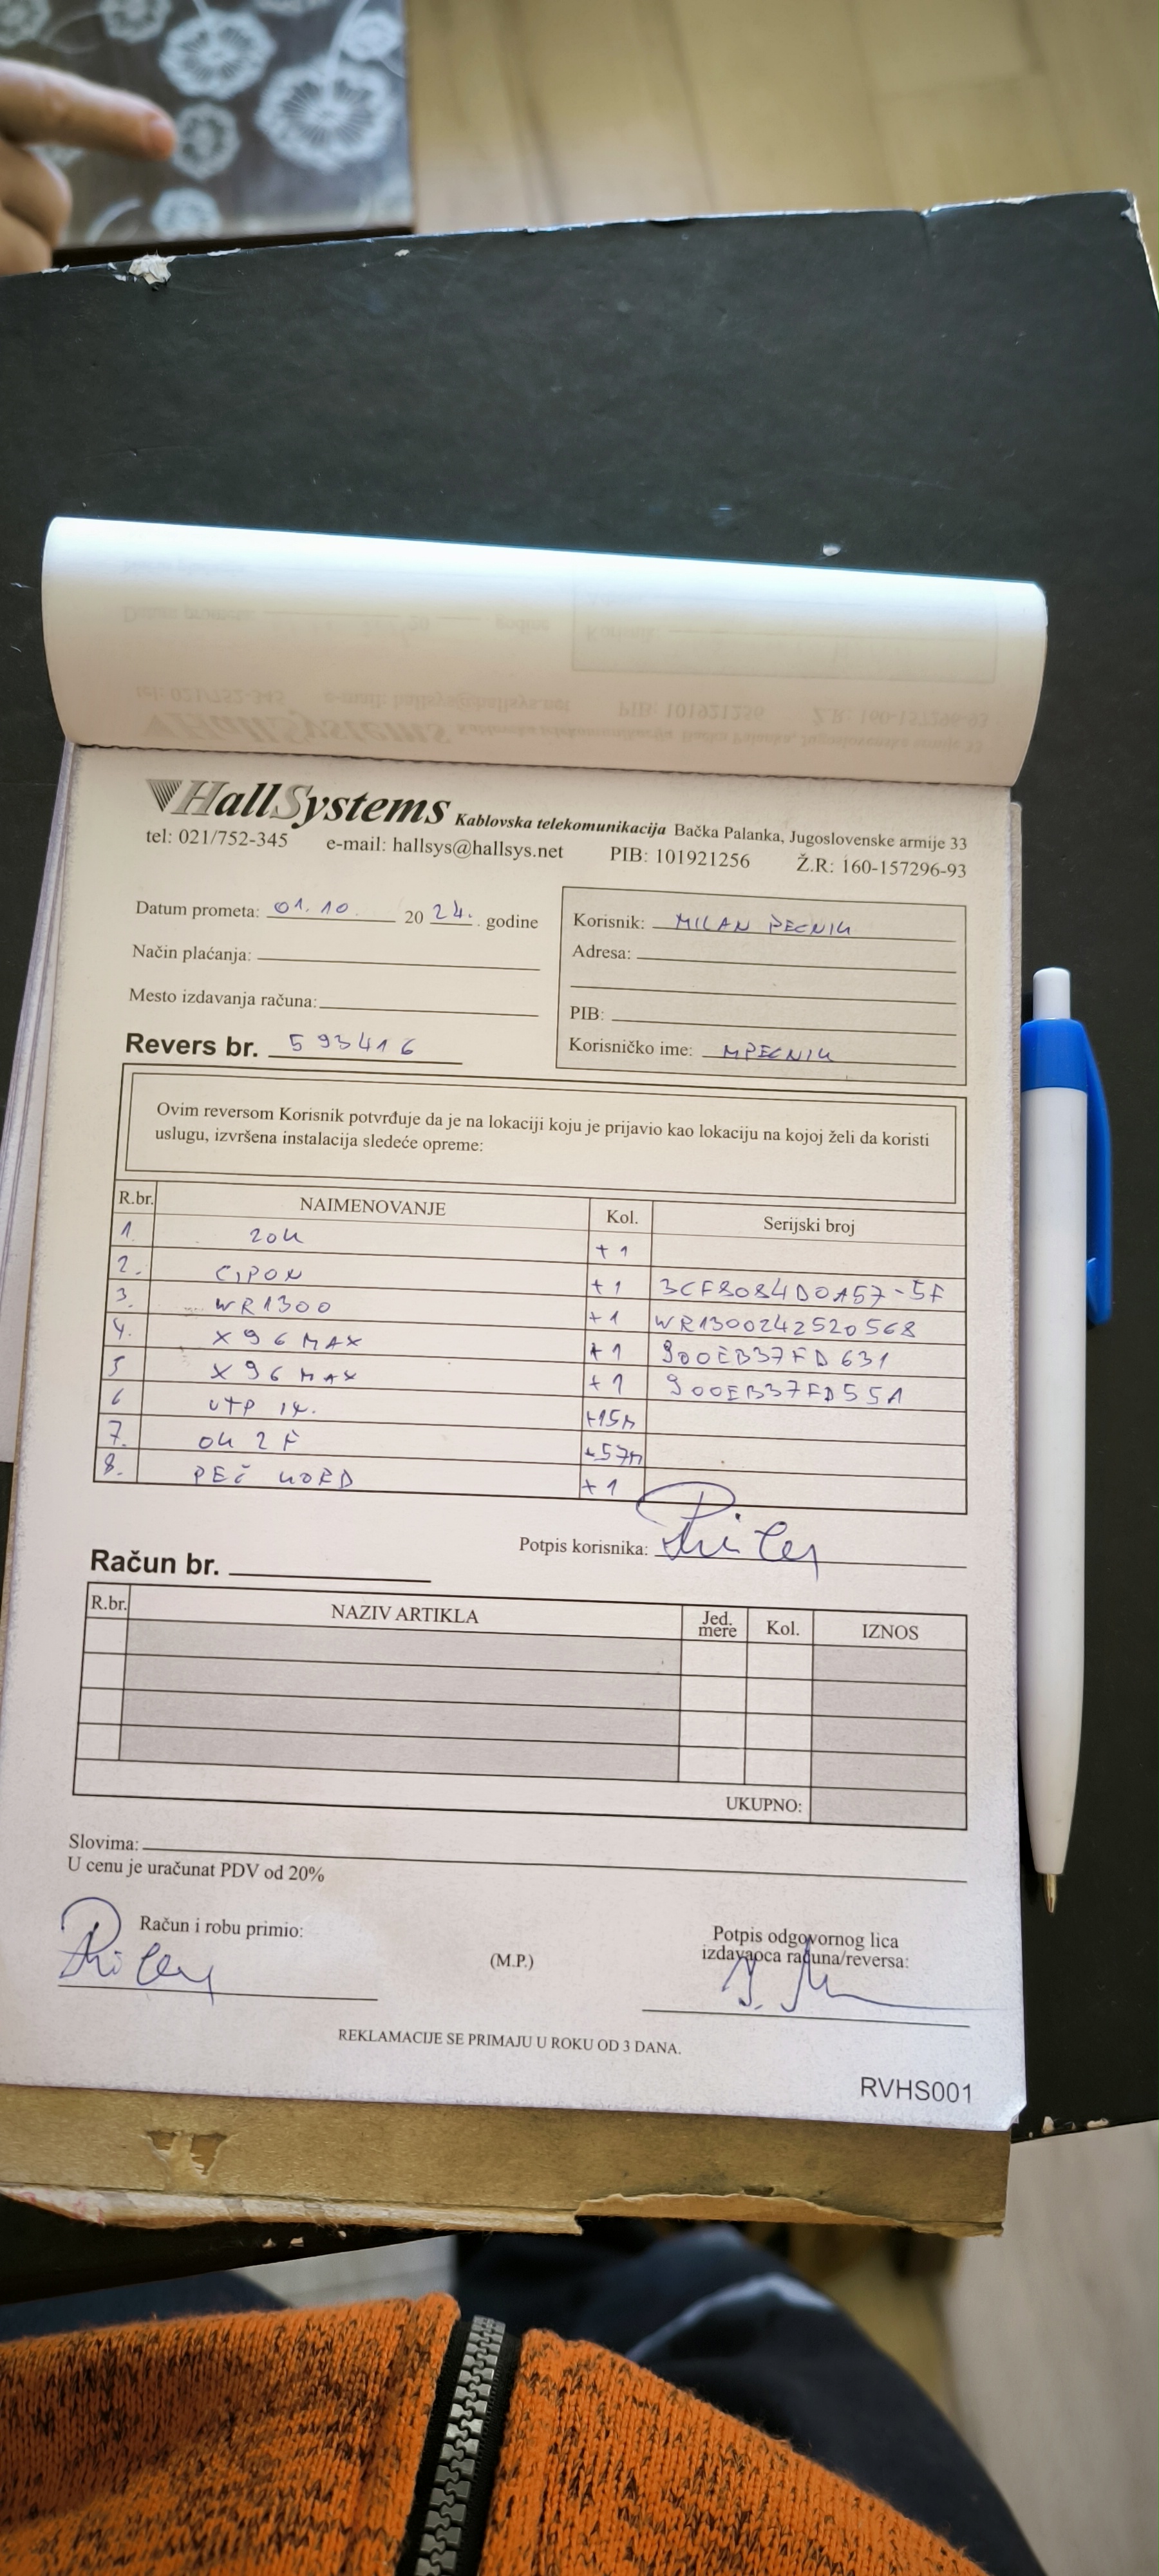 HallSystems Kablovska telekomunikacija Bačka Palanka, Jugoslovenske armije 33
tel: 021/752-345 e-mail: hallsys@hallsys.net PIB: 101921256 Ž.R: 160-157296-93
Datum prometa: 01.10 20 24. godine
Način plaćanja:
Mesto izdavanja računa:
Revers br. 593416
Korisnik: MILAN PECNIK
Adresa:
PIB:
Korisničko ime: MPECNIK
Ovim reversom Korisnik potvrđuje da je na lokaciji koju je prijavio kao lokaciju na kojoj želi da koristi
uslugu, izvršena instalacija sledeće opreme:
R.br. NAIMENOVANJE Kol. Serijski broj
1. 20k +1
2. CIPON +1 3CF8084D0A57-5F
3. WR1300 +1 WR1300242520568
4. X96 MAX +1 900EB37FD631
5 X96 MAX +1 900EB37FD55A
6 UTP +15m
7. OK 2F +57m
8. PEČ KORD +1
Potpis korisnika:
Račun br.
R.br. NAZIV ARTIKLA Jed. mere Kol. IZNOS
UKUPNO:
Slovima:
U cenu je uračunat PDV od 20%
Račun i robu primio:
(M.P.)
Potpis odgovornog lica
izdavaoca računa/reversa:
REKLAMACIJE SE PRIMAJU U ROKU OD 3 DANA.
RVHS001